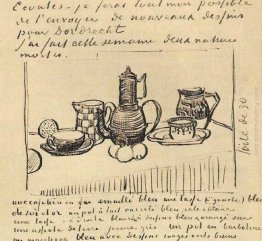 Ecoutes – je ferai tout mon possible
de t'envoyer de nouveaux dessins
pour Dordrecht
J'ai fait cette semaine deux natures
mortes.
toile de 30
une cafetière en fer émaillé bleu une tasse (à gauche) bleu
de roi et or un pot à lait carrelé bleu
une tasse à droite blanche dessins bleus orangé sur
une assiette de terre jaune gris un pot en barbotine
bleu avec dessins rouges verts bruns